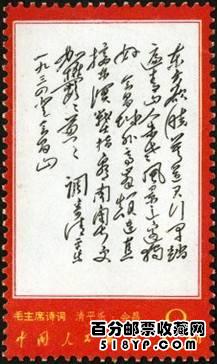 东方欲晓莫道君行早踏
遍青山人未老风景这边独
好会昌城外高峰颠连直
接东溟战士指看南粤更
加郁郁葱葱 调寄清平乐
一九三四年登会昌山
毛主席诗词 清平乐·会昌
中国人民
518YP.com